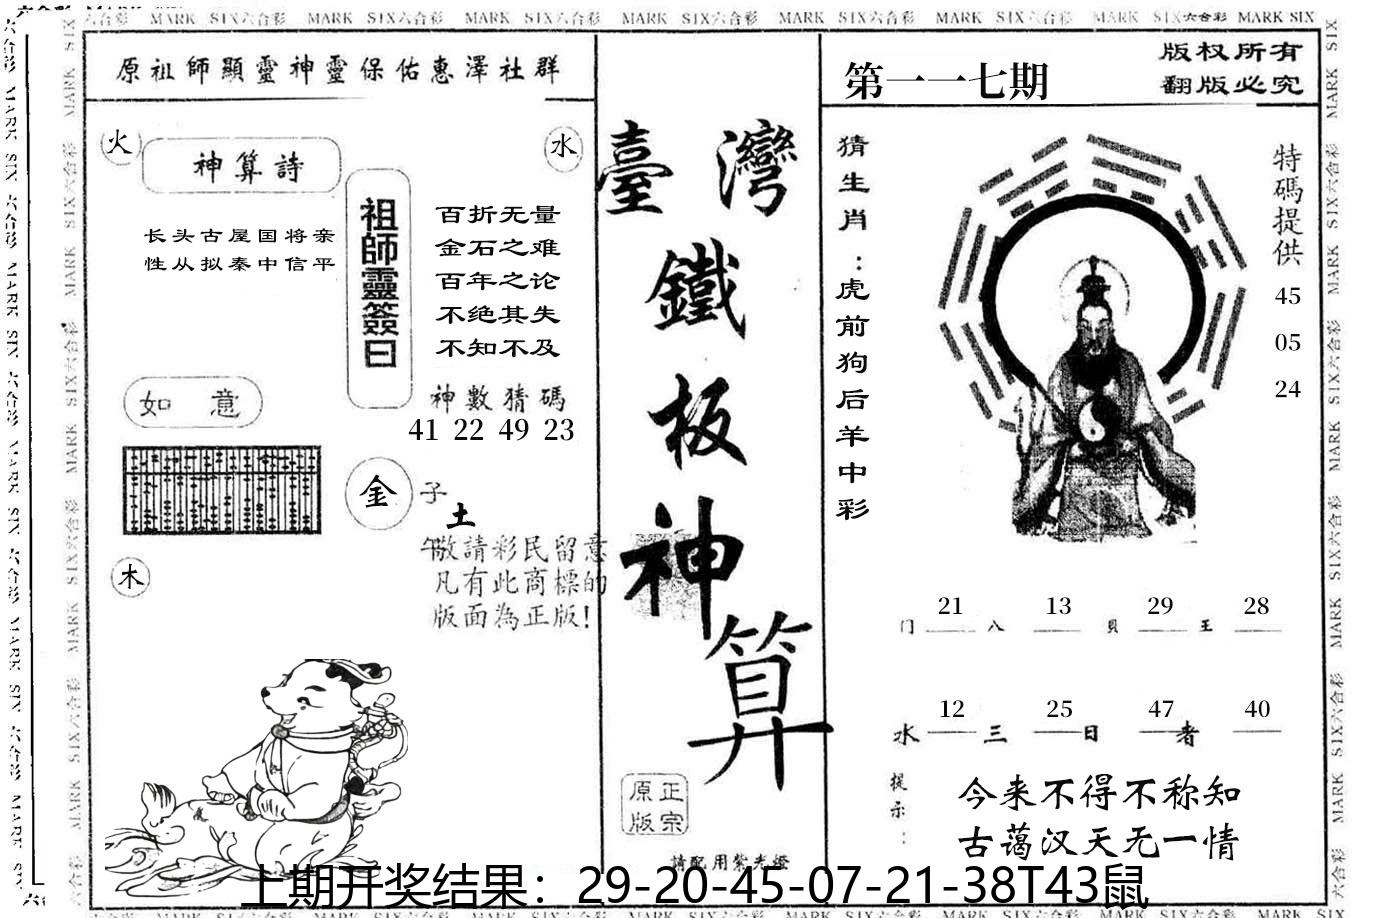 MARK SIX六合彩 MARK SIX六合彩 MARK SIX六合彩 MARK SIX六合彩 MARK SIX六合彩 MARK SIX六合彩 MARK SIX六合彩 MARK SIX
原祖師顯靈神靈保佑惠澤社群
火
水
神算詩
长头古屋国将亲
性从拟秦中信平
祖師靈簽曰
百折无量
金石之难
百年之论
不绝其失
不知不及
神數猜碼
41 22 49 23
如 意
金
子
土
午
木
敬請彩民留意
凡有此商標的
版面為正版!
臺灣
鐵
板
神
算
正宗
原版
請配用紫光燈
第一一七期
版权所有
翻版必究
猜生肖:虎前狗后羊中彩
特碼提供
45
05
24
21 13 29 28
门 八 貝 王
12 25 47 40
水 三 日 者
提示:
今来不得不称知
古蔼汉天无一情
上期开奖结果：29-20-45-07-21-38T43鼠